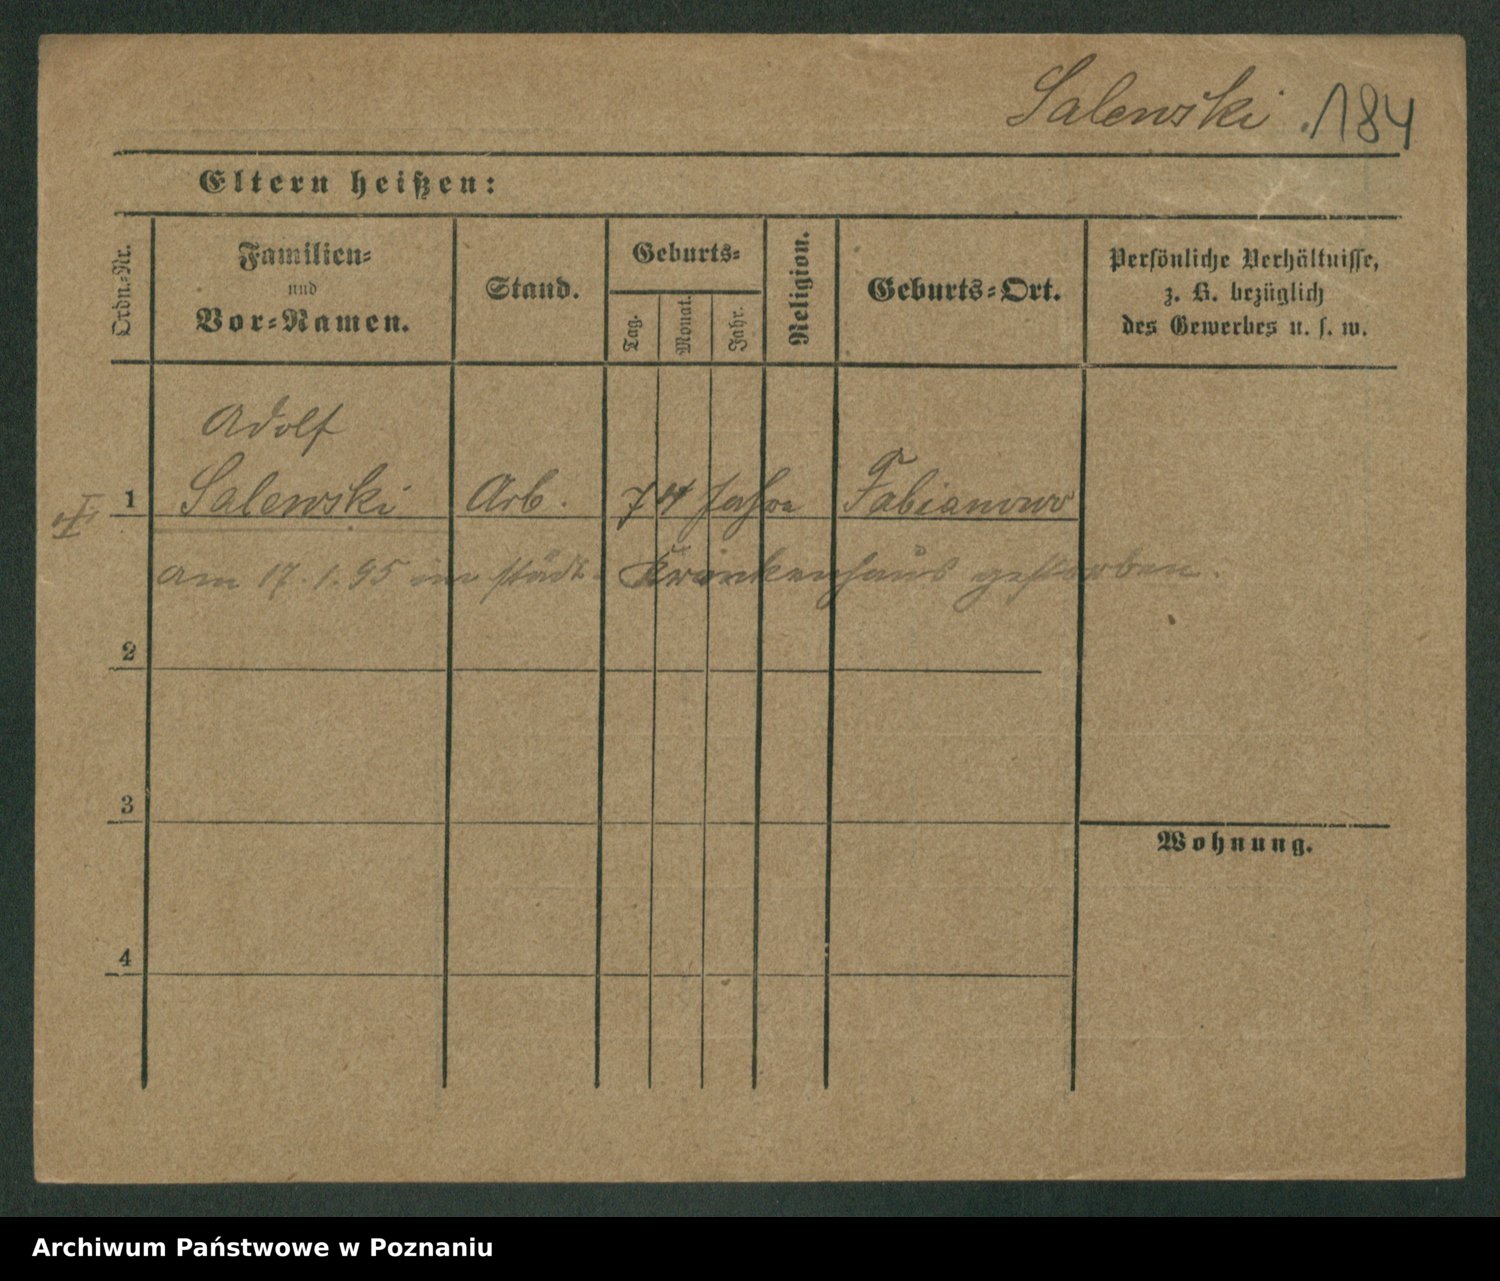 Salewski . 184
Eltern heißen:
Ordn.-Nr.
Familien-
und
Vor-Namen.
Stand.
Geburts-
Tag.
Monat.
Jahr.
Religion.
Geburts-Ort.
Persönliche Verhältnisse,
z. B. bezüglich
des Gewerbes u. s. w.
Adolf
1 Salewski Arb. 74 Jahre Fabianowo
am 17.1.95 im städt. Krankenhaus gestorben.
2
3
Wohnung.
4
Archiwum Państwowe w Poznaniu